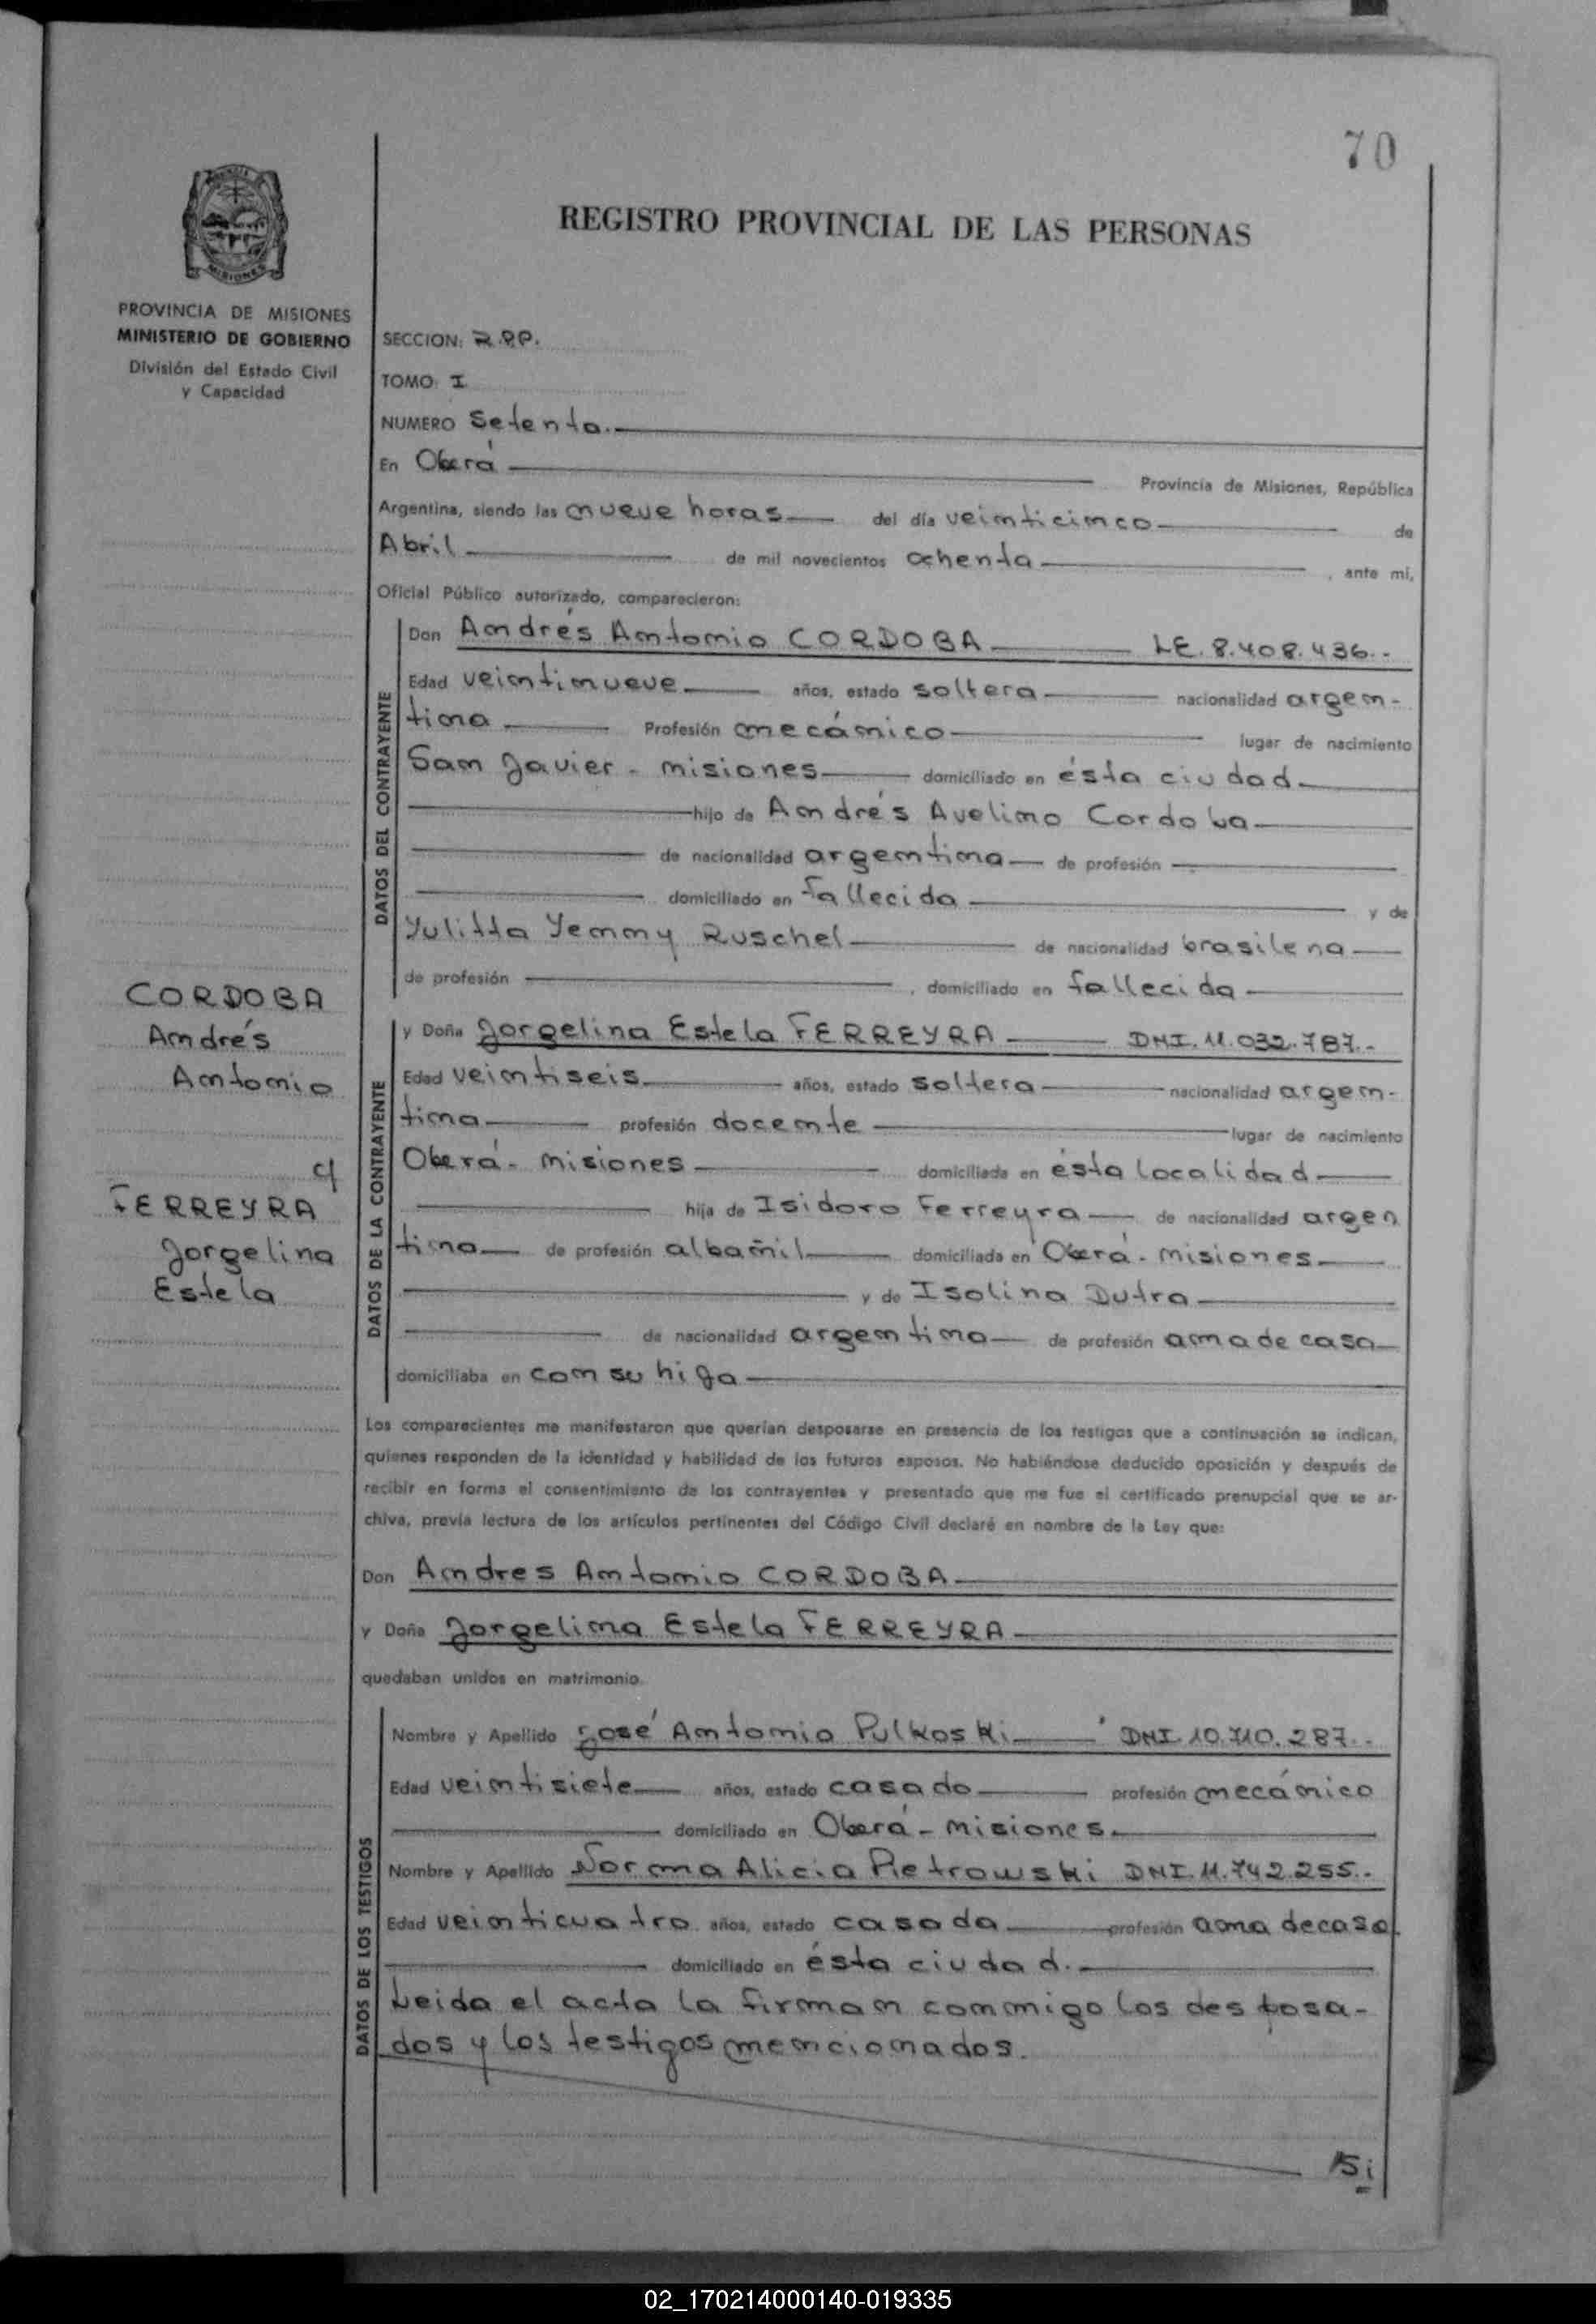 70
REGISTRO PROVINCIAL DE LAS PERSONAS
PROVINCIA DE MISIONES
MINISTERIO DE GOBIERNO
División del Estado Civil
y Capacidad
SECCION: R.P.P.
TOMO: I
NUMERO Setenta.
En Oberá Provincia de Misiones, República
Argentina, siendo las nueve horas del día veinticinco de
Abril de mil novecientos ochenta, ante mi,
Oficial Público autorizado, comparecieron:
DATOS DEL CONTRAYENTE
Don Andrés Antonio CORDOBA LE. 8.408.436.-
Edad veintinueve años, estado soltera nacionalidad argen-
tina Profesión mecánico lugar de nacimiento
San Javier - misiones domiciliado en ésta ciudad
hijo de Andrés Avelino Cordoba
de nacionalidad argentina de profesión
domiciliado en fallecida y de
Yulitta Yenny Ruschel de nacionalidad brasilena
de profesión , domiciliado en fallecida
CORDOBA
Andrés
Antonio
c/
FERREYRA
Jorgelina
Estela
DATOS DE LA CONTRAYENTE
y Doña Jorgelina Estela FERREYRA DNI. 11.032.787.-
Edad veintiseis años, estado soltera nacionalidad argen-
tina profesión docente lugar de nacimiento
Oberá - misiones domiciliada en ésta localidad
hija de Isidoro Ferreyra de nacionalidad argen
tina de profesión albañil domiciliada en Oberá - misiones
y de Isolina Dutra
de nacionalidad argentina de profesión ama de casa
domiciliaba en con su hija
Los comparecientes me manifestaron que querían desposarse en presencia de los testigos que a continuación se indican,
quienes responden de la identidad y habilidad de los futuros esposos. No habiéndose deducido oposición y después de
recibir en forma el consentimiento de los contrayentes y presentado que me fue el certificado prenupcial que se ar-
chiva, previa lectura de los artículos pertinentes del Código Civil declaré en nombre de la Ley que:
Don Andres Antonio CORDOBA
y Doña Jorgelina Estela FERREYRA
quedaban unidos en matrimonio.
DATOS DE LOS TESTIGOS
Nombre y Apellido José Antonio Pulkoski DNI. 10.710.287.-
Edad veintisiete años, estado casado profesión mecánico
domiciliado en Oberá - misiones.
Nombre y Apellido Norma Alicia Pietrowski DNI. 11.742.255.-
Edad veinticuatro años, estado casada profesión ama de casa
domiciliado en ésta ciudad.
Leida el acta la firman conmigo los desposa-
dos y los testigos mencionados.
02_170214000140-019335